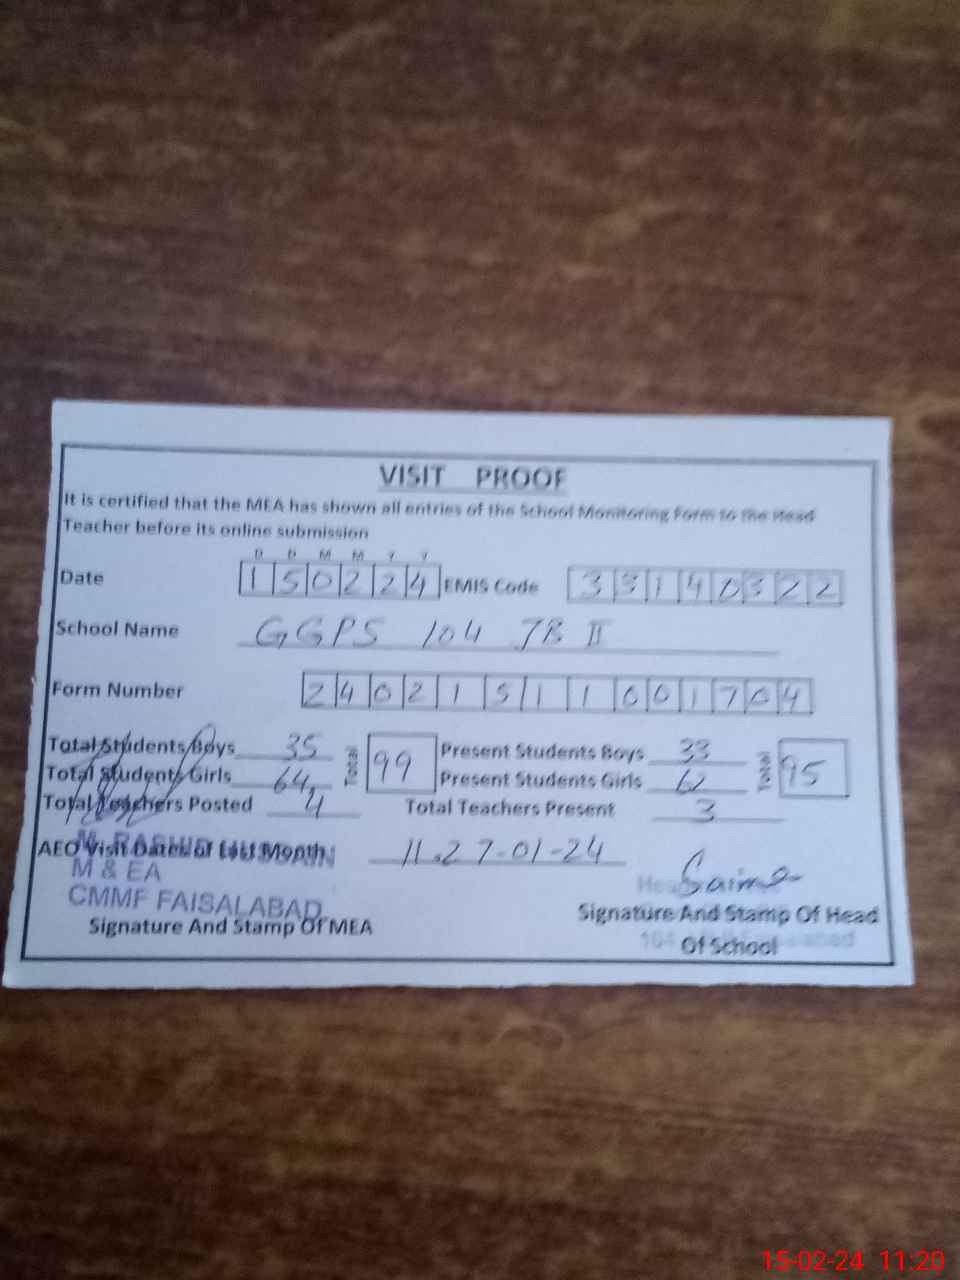 VISIT PROOF
It is certified that the MEA has shown all entries of the School Monitoring Form to the Head
Teacher before its online submission
D D M M Y Y
Date 150224 EMIS Code 33140322
School Name GGPS 104 7B II
Form Number 24021511001704
Total Students Boys 35 Total 99 Present Students Boys 33 Total 95
Total Students Girls 64 Present Students Girls 62
Total Teachers Posted 4 Total Teachers Present 3
AEO Visit Dates of Last Month 11.27-01-24
M. RASHID HUSSAIN
M & EA
CMMF FAISALABAD
Signature And Stamp Of MEA
Head Saima
Signature And Stamp Of Head
Of School
104
15-02-24 11:20